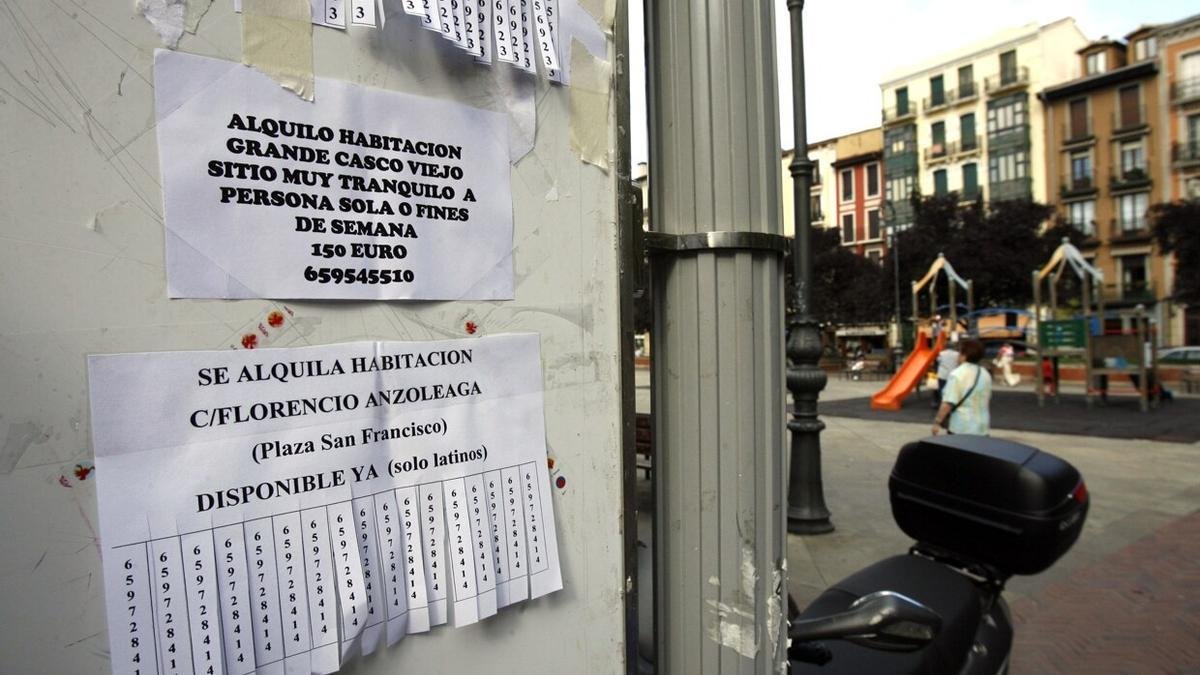 ALQUILO HABITACION
GRANDE CASCO VIEJO
SITIO MUY TRANQUILO A
PERSONA SOLA O FINES
DE SEMANA
150 EURO
659545510
SE ALQUILA HABITACION
C/FLORENCIO ANZOLEAGA
(Plaza San Francisco)
DISPONIBLE YA (solo latinos)
65972841
65972841
659728414
659728414
659728414
659728414
659728414
659728414
659728414
659728414
659728414
659728414
659728414
659728414
659728414
659728414
659728414